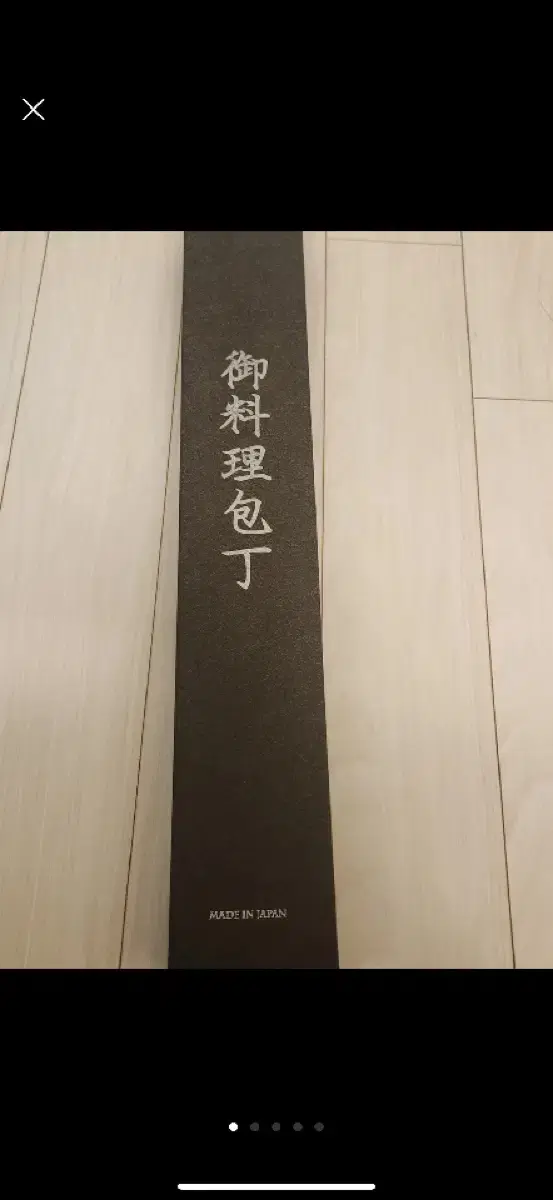 御料理包丁
MADE IN JAPAN